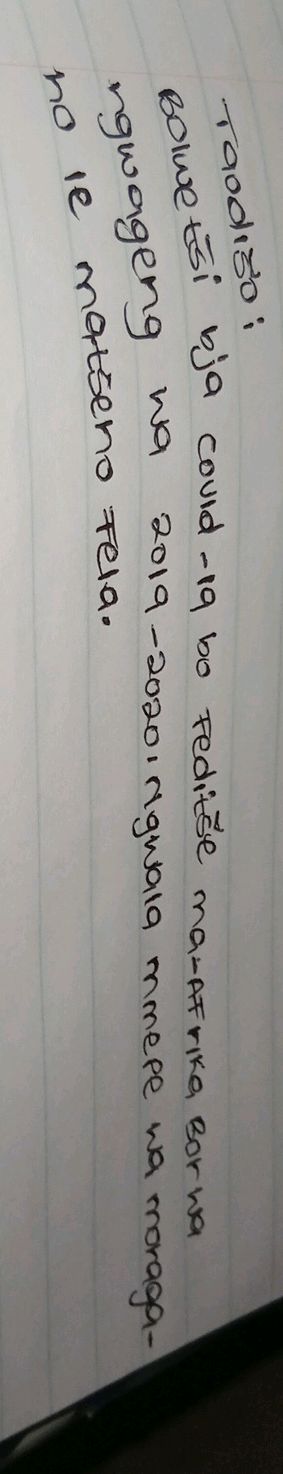 Taodišo:
Bolwetši bja covid-19 bo feditše ma-Afrika Borwa
ngwageng wa 2019-2020. Ngwala mmepe wa moraga-
no le matseno fela.